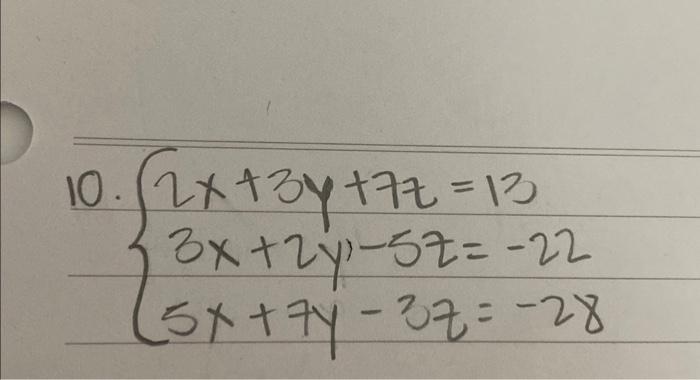 10. 2x+3y+7z=13
3x+2y-5z=-22
5x+7y-3z=-28